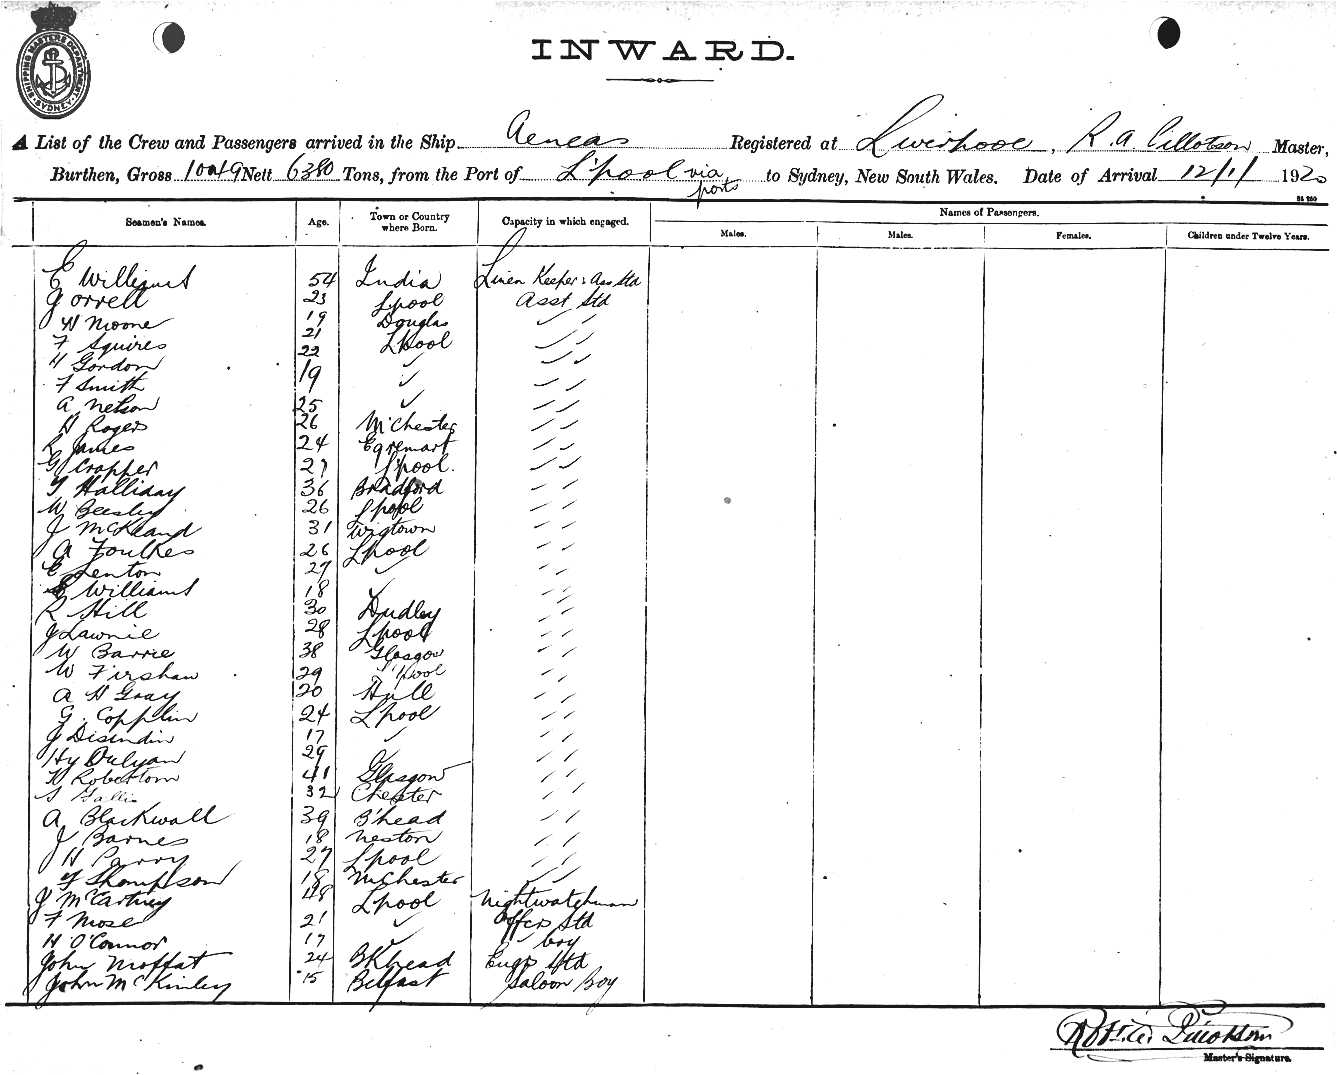 SHIPPING MASTERS DEPARTMENT SYDNEY
INWARD.
A List of the Crew and Passengers arrived in the Ship Aeneas Registered at Liverpool, R. A. Tillotson Master,
Burthen, Gross 10049 Nett 6380 Tons, from the Port of L'pool via ports to Sydney, New South Wales. Date of Arrival 12/11/1920
Seamen's Names. Age. Town or Country where Born. Capacity in which engaged. Names of Passengers.
Males. Males. Females. Children under Twelve Years.
E Williams 54 India Linen Keeper & Ass Std
J Orrell 23 Lpool Asst Std
W Moone 19 Douglas " "
F Squires 21 Lpool " "
H Gordon 22 " " "
F Smith 19 " " "
A Nelson 25 " " "
H Rogers 26 M'Chester " "
R James 24 Egremart " "
G Cropper 27 L'pool. " "
T Halliday 36 Bradford " "
W Beesley 26 Lpool " "
J McKeand 31 Wigtown " "
A Foulkes 26 Lpool " "
E Lenton 27 " " "
E Williams 18 " " "
R Hill 30 Dudley " "
J Lawnie 28 Lpool " "
W Barrie 38 Glasgow " "
W Firshaw 29 L'pool " "
A H Gray 20 Hull " "
G. Copplin 24 L'pool " "
J Disindin 17 " " "
Hy 29 " " "
Robertson 41 Glasgow " "
S Gallis 32 Chester " "
A Blackwall 39 B'head " "
J Barnes 18 Neston " "
H Parry 27 Lpool " "
F Thompson 18 M'Chester " "
J McCartney 48 Lpool Nightwatchman
F Mose 21 " Offcrs Std
H O'Connor 17 " " boy
John Moffat 24 BKhead Engs Std
John McKinley 15 Belfast Saloon Boy
Robt. A. Tillotson
Master's Signature.